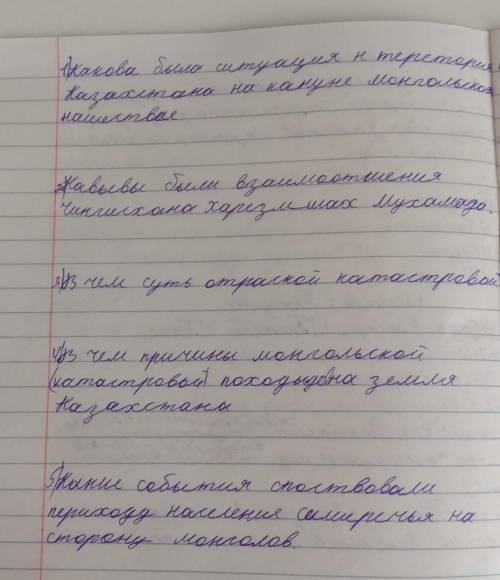 1) Какова была ситуация н теретория
Казахстана на кануне монгольской
нашествае
2) Кавывы были взаимоотшения
Чингисхана харезмшах Мухамада.
3) В чем суть отраской катастровой
4) В чем причины монгольской
(катастровой) походы на земля
Казахстана
5) Какие события спостовали
периходу население семиречья на
сторону монголов.